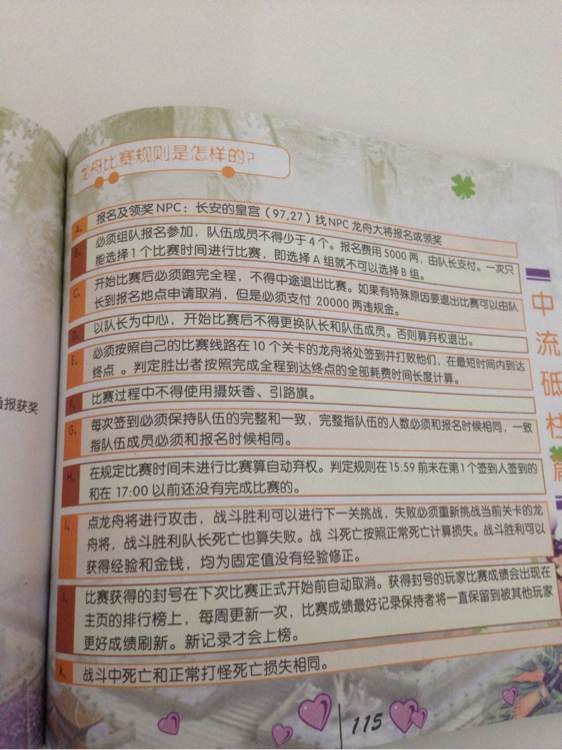 龙舟比赛规则是怎样的?
A、报名及领奖NPC：长安的皇宫（97,27）找NPC龙舟大将报名或领奖
B、必须组队报名参加，队伍成员不得少于4个。报名费用5000两，由队长支付。一次只
能选择1个比赛时间进行比赛，即选择A组就不可以选择B组。
C、开始比赛后必须跑完全程，不得中途退出比赛。如果有特殊原因要退出比赛可以由队
长到报名地点申请取消，但是必须支付20000两违规金。
D、以队长为中心，开始比赛后不得更换队长和队伍成员。否则算弃权退出。
E、必须按照自己的比赛线路在10个关卡的龙舟将处签到并打败他们，在最短时间内到达
终点。判定胜出者按照完成全程到达终点的全部耗费时间长度计算。
F、比赛过程中不得使用摄妖香、引路旗。
G、每次签到必须保持队伍的完整和一致，完整指队伍的人数必须和报名时候相同，一致
指队伍成员必须和报名时候相同。
H、在规定比赛时间未进行比赛算自动弃权。判定规则在15:59前未在第1个签到人签到的
和在17:00以前还没有完成比赛的。
I、点龙舟将进行攻击，战斗胜利可以进行下一关挑战，失败必须重新挑战当前关卡的龙
舟将，战斗胜利队长死亡也算失败。战 斗死亡按照正常死亡计算损失。战斗胜利可以
获得经验和金钱，均为固定值没有经验修正。
J、比赛获得的封号在下次比赛正式开始前自动取消。获得封号的玩家比赛成绩会出现在
主页的排行榜上，每周更新一次，比赛成绩最好记录保持者将一直保留到被其他玩家
更好成绩刷新。新记录才会上榜。
K、战斗中死亡和正常打怪死亡损失相同。
中流砥柱
报获奖
115